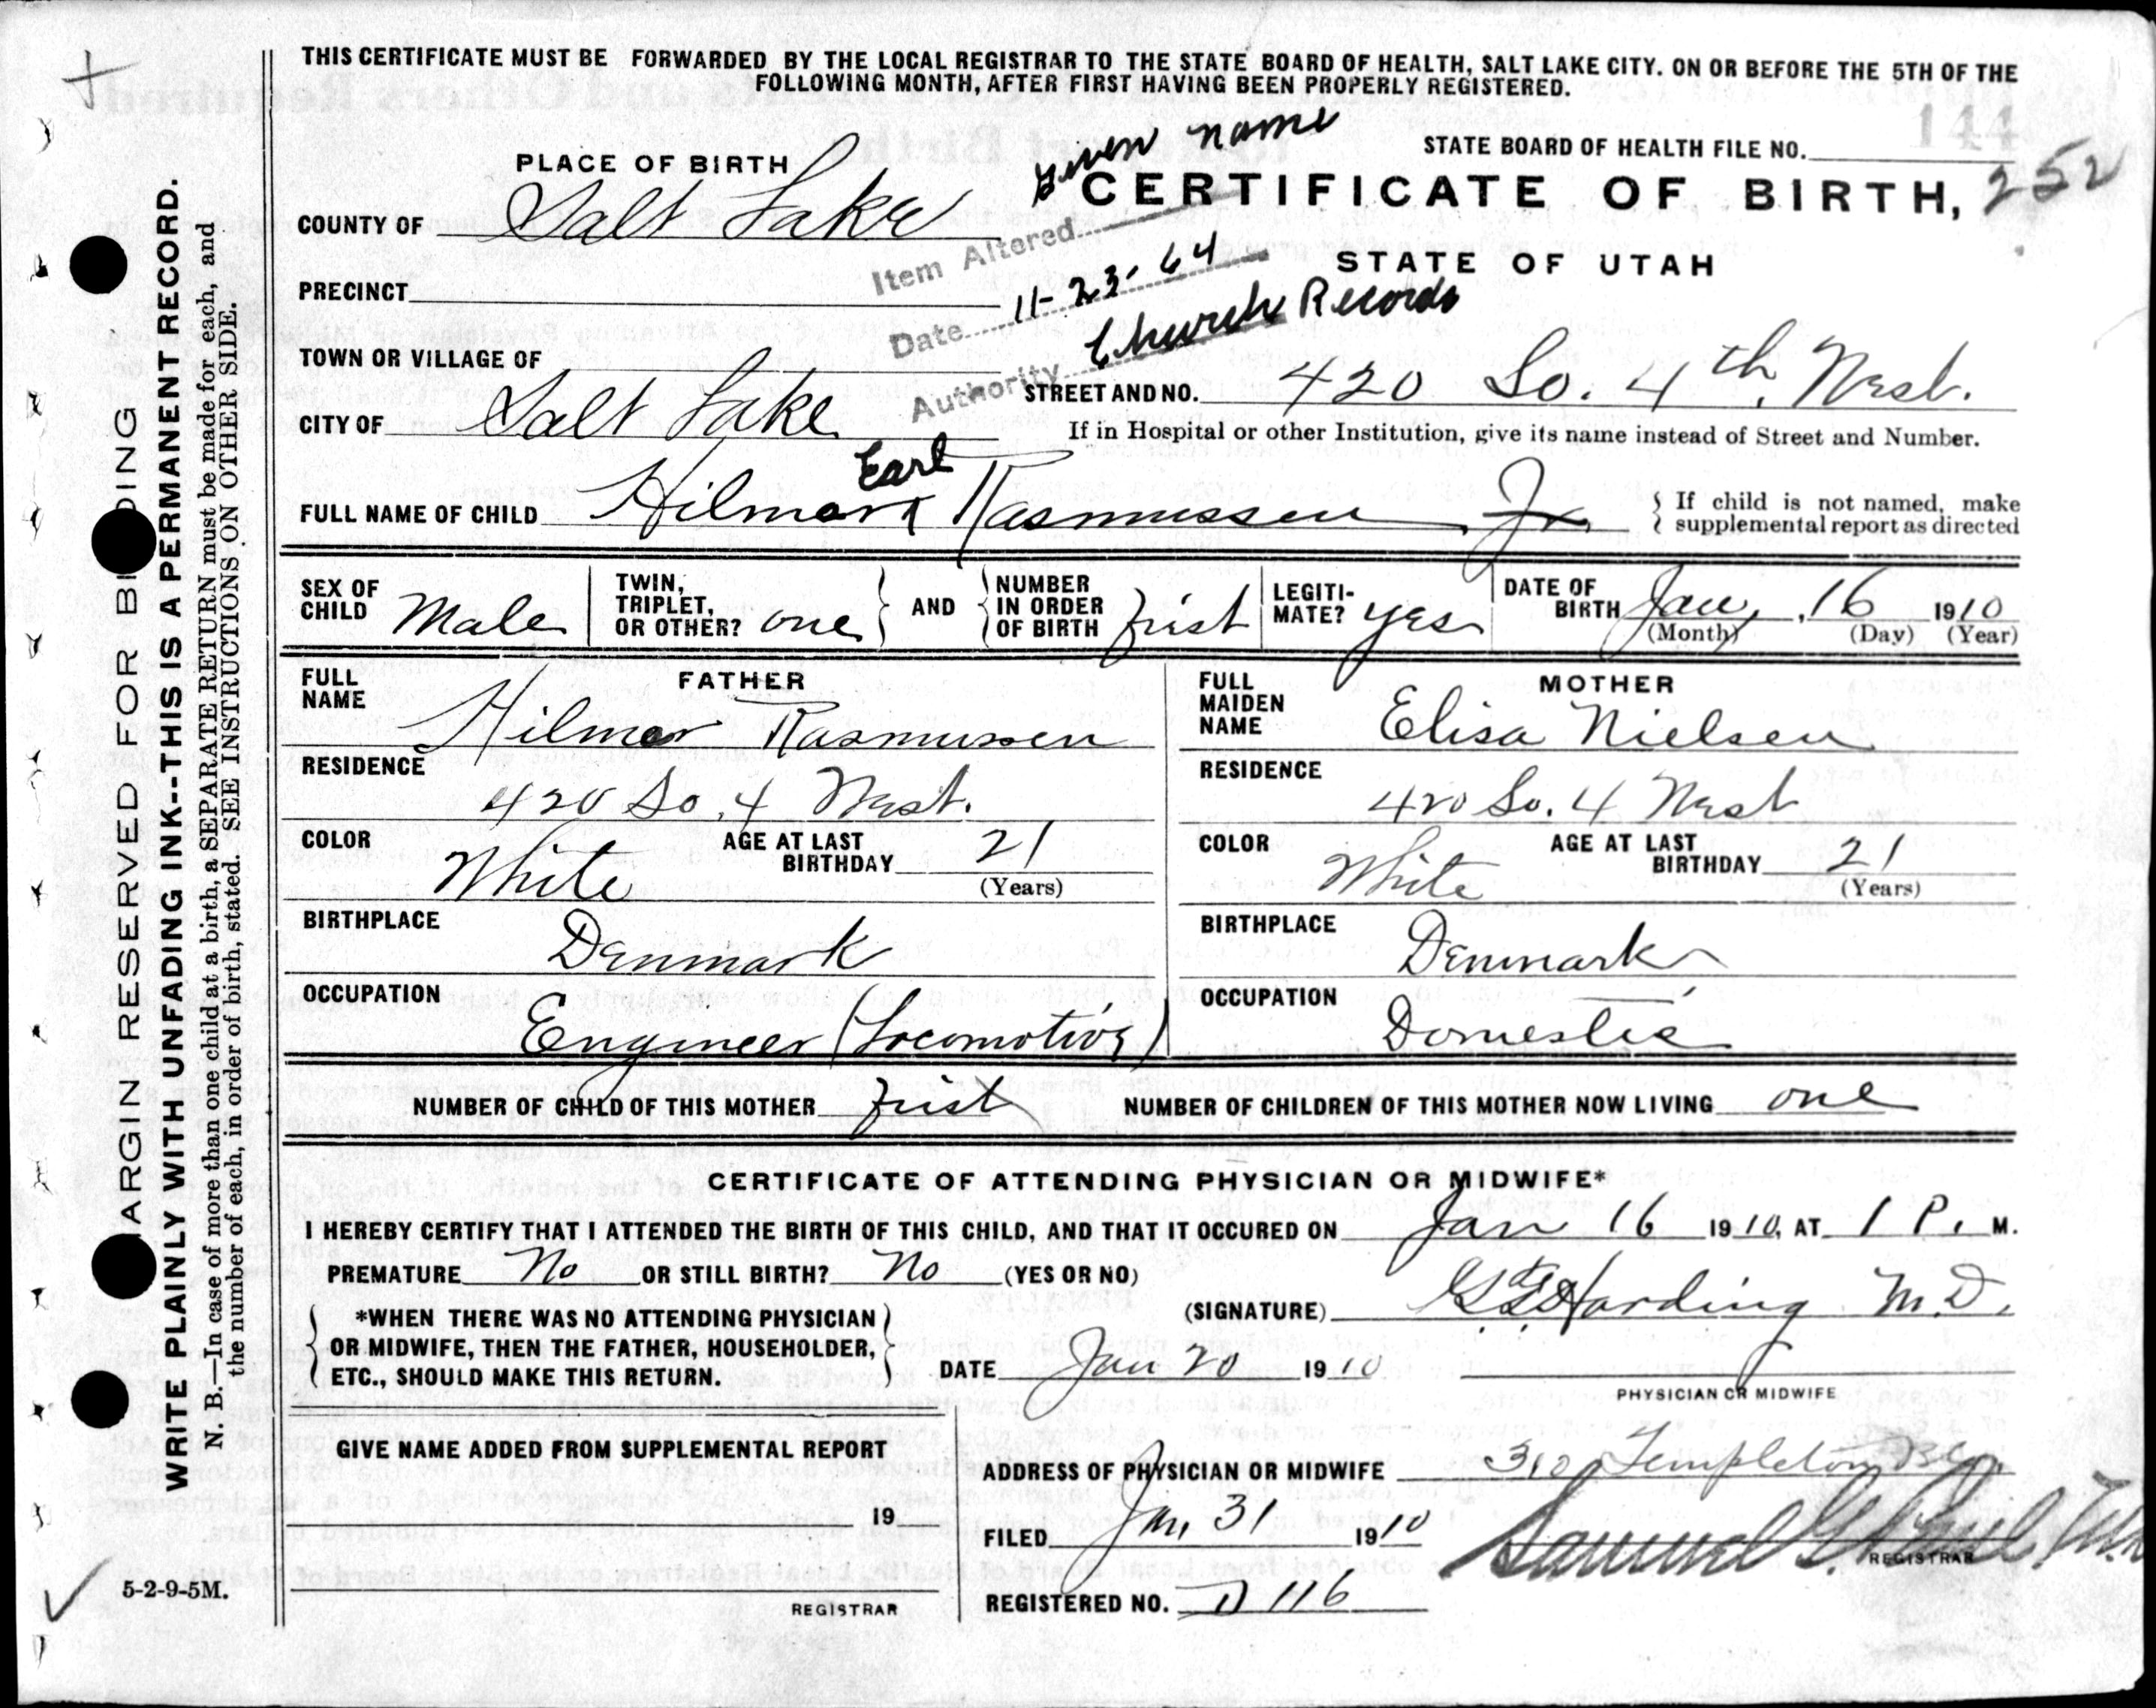 THIS CERTIFICATE MUST BE FORWARDED BY THE LOCAL REGISTRAR TO THE STATE BOARD OF HEALTH, SALT LAKE CITY. ON OR BEFORE THE 5TH OF THE
FOLLOWING MONTH, AFTER FIRST HAVING BEEN PROPERLY REGISTERED.
144
Given name
STATE BOARD OF HEALTH FILE NO.
PLACE OF BIRTH
CERTIFICATE OF BIRTH, 252
COUNTY OF Salt Lake
Item Altered
STATE OF UTAH
PRECINCT
Date 11-23-64
Church Records
TOWN OR VILLAGE OF
Authority
STREET AND NO. 420 So. 4th West.
CITY OF Salt Lake
If in Hospital or other Institution, give its name instead of Street and Number.
Earl
FULL NAME OF CHILD Hilmar Rasmussen Jr.
If child is not named, make
supplemental report as directed
SEX OF CHILD Male
TWIN, TRIPLET, OR OTHER? one
AND
NUMBER IN ORDER OF BIRTH first
LEGITI-MATE? yes
DATE OF BIRTH Jan, 16 1910
(Month) (Day) (Year)
FATHER
FULL NAME Hilmar Rasmussen
RESIDENCE 420 So. 4 West.
COLOR White
AGE AT LAST BIRTHDAY 21
(Years)
BIRTHPLACE Denmark
OCCUPATION Engineer (Locomotive)
MOTHER
FULL MAIDEN NAME Elisa Nielsen
RESIDENCE 420 So. 4 West
COLOR White
AGE AT LAST BIRTHDAY 21
(Years)
BIRTHPLACE Denmark
OCCUPATION Domestic
NUMBER OF CHILD OF THIS MOTHER first NUMBER OF CHILDREN OF THIS MOTHER NOW LIVING one
CERTIFICATE OF ATTENDING PHYSICIAN OR MIDWIFE*
I HEREBY CERTIFY THAT I ATTENDED THE BIRTH OF THIS CHILD, AND THAT IT OCCURED ON Jan 16 1910, AT 1 P. M.
PREMATURE No OR STILL BIRTH? No (YES OR NO)
*WHEN THERE WAS NO ATTENDING PHYSICIAN
OR MIDWIFE, THEN THE FATHER, HOUSEHOLDER,
ETC., SHOULD MAKE THIS RETURN.
(SIGNATURE) Harding M.D.
DATE Jan 20 1910
PHYSICIAN OR MIDWIFE
GIVE NAME ADDED FROM SUPPLEMENTAL REPORT
19
REGISTRAR
ADDRESS OF PHYSICIAN OR MIDWIFE 310 Templeton Bldg.
FILED Jan, 31 1910
Samuel G. Paul
REGISTRAR
REGISTERED NO. D 116
MARGIN RESERVED FOR BINDING
WRITE PLAINLY WITH UNFADING INK--THIS IS A PERMANENT RECORD.
N. B.—In case of more than one child at a birth, a SEPARATE RETURN must be made for each, and
the number of each, in order of birth, stated. SEE INSTRUCTIONS ON OTHER SIDE.
5-2-9-5M.